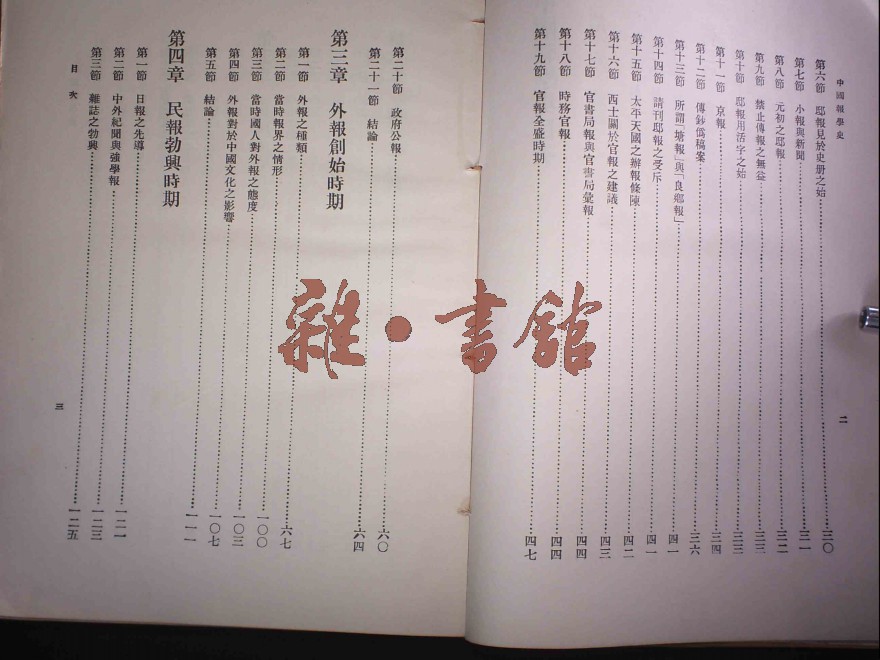 中國報學史
二
第六節 邸報見於史册之始……三〇
第七節 小報與新聞……三一
第八節 元初之邸報……三二
第九節 禁止傳報之無益……三三
第十節 邸報用活字之始……三三
第十一節 京報……三四
第十二節 傳鈔僞稿案……三六
第十三節 所謂「塘報」與「良鄉報」……四一
第十四節 請刊邸報之受斥……四一
第十五節 太平天國之辦報條陳……四二
第十六節 西士關於官報之建議……四三
第十七節 官書局報與官書局彙報……四四
第十八節 時務官報……四四
第十九節 官報全盛時期……四七
第二十節 政府公報……六〇
第二十一節 結論……六四
第三章 外報創始時期
第一節 外報之種類……六七
第二節 當時報界之情形……一〇〇
第三節 當時國人對外報之態度……一〇三
第四節 外報對於中國文化之影響……一〇七
第五節 結論……一一一
第四章 民報勃興時期
第一節 日報之先導……一二一
第二節 中外紀聞與強學報……一二三
第三節 雜誌之勃興……一二五
目次
三
雜·書舘